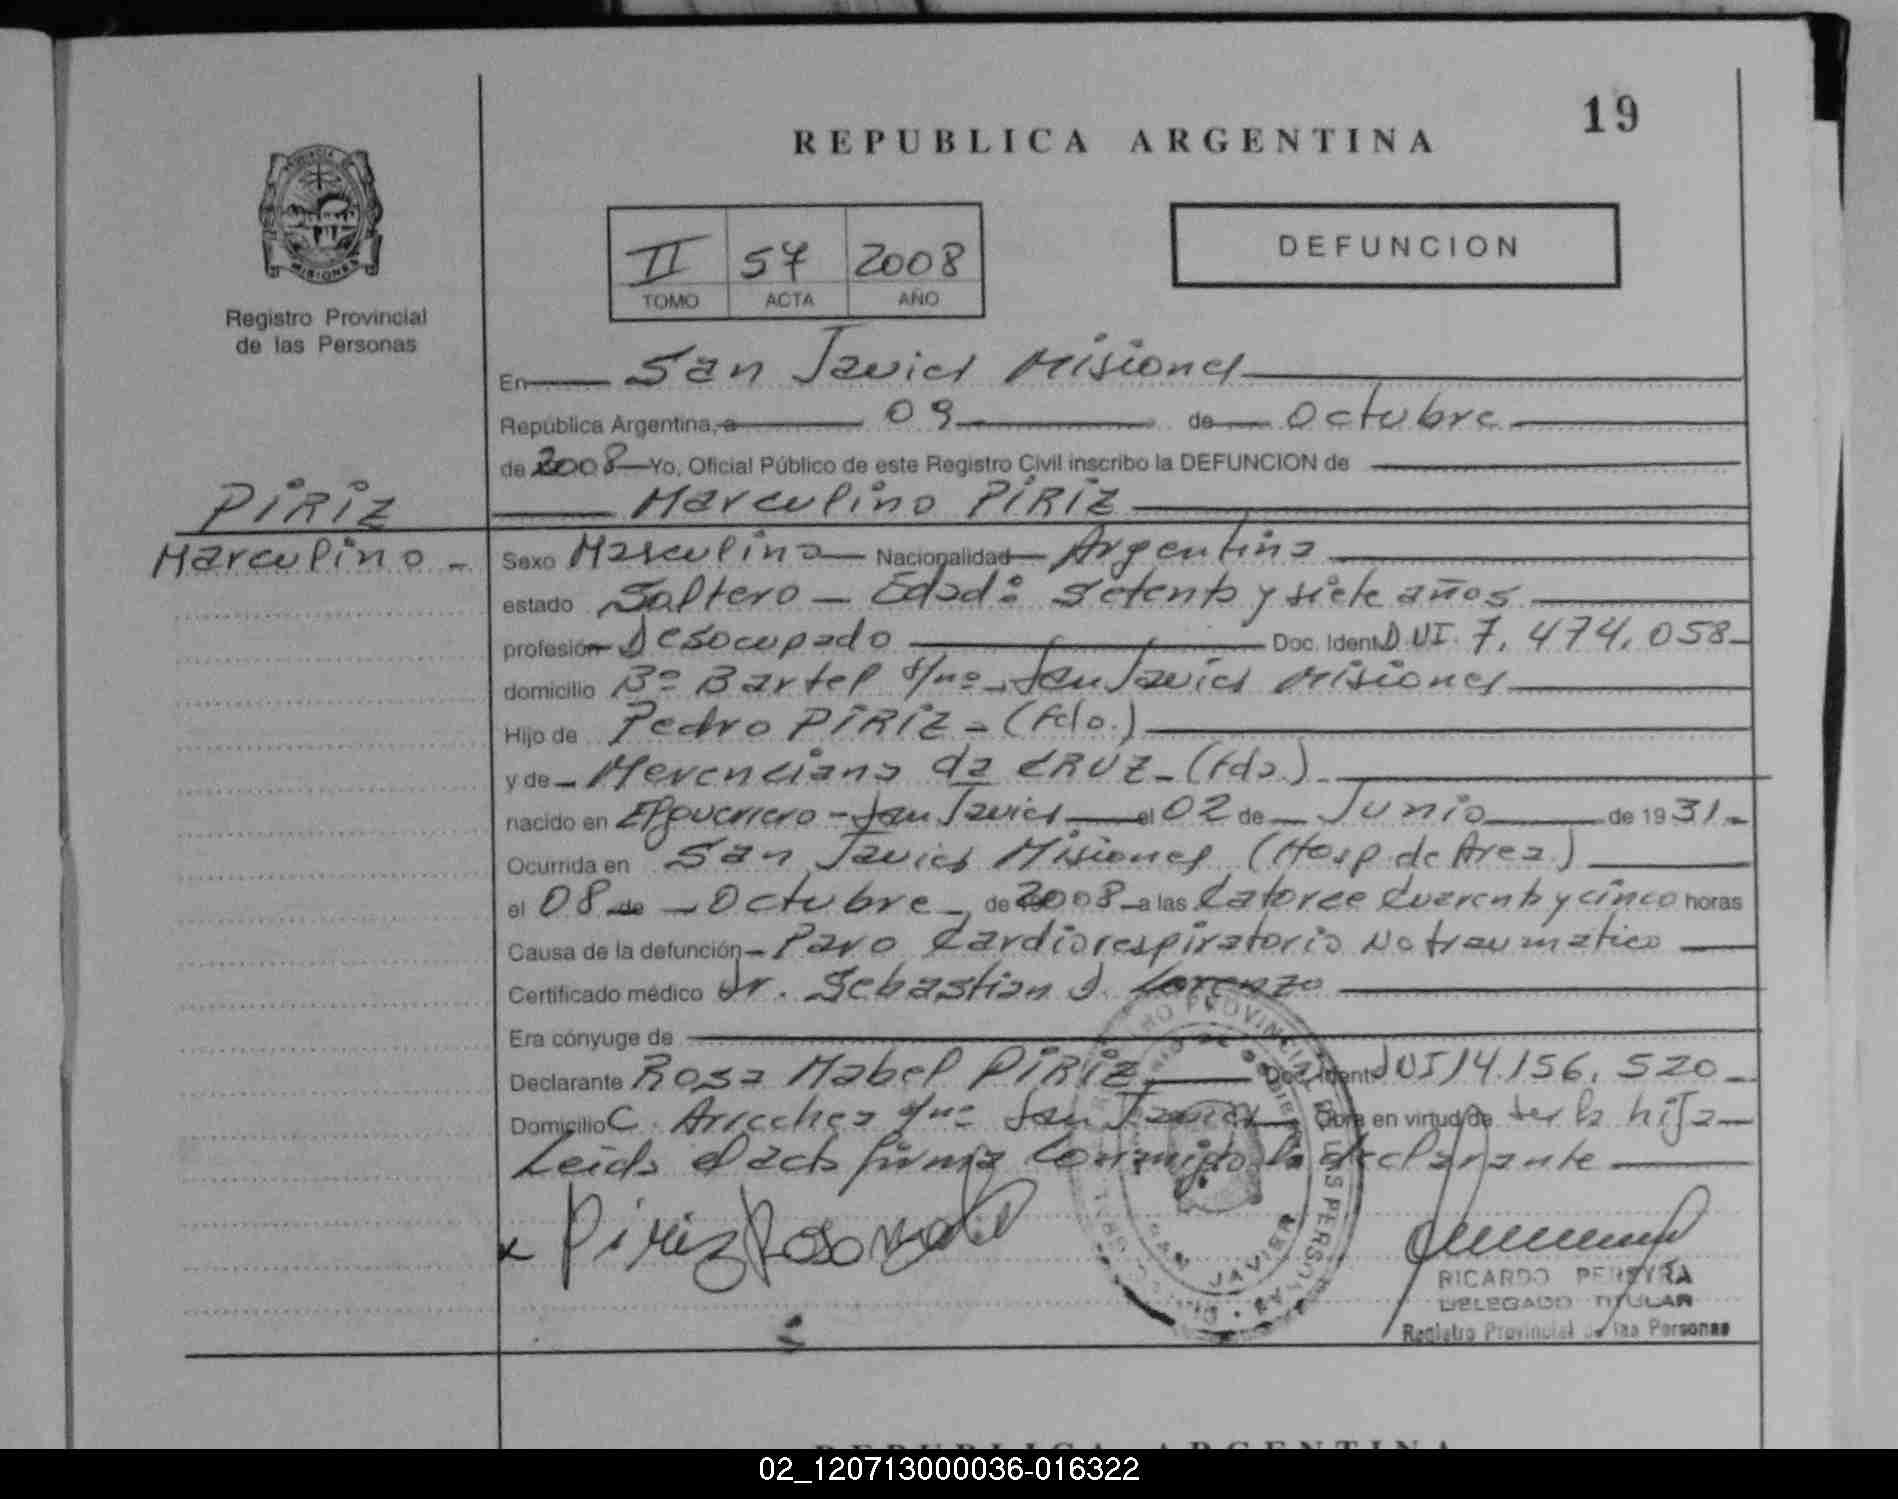 19
REPUBLICA ARGENTINA
MISIONES
Registro Provincial
de las Personas
II 57 2008
TOMO ACTA AÑO
DEFUNCION
En San Javier Misiones
República Argentina, a 09 de Octubre
de 2008 Yo, Oficial Público de este Registro Civil inscribo la DEFUNCION de
Marculino PIRIZ
PIRIZ
Marculino -
Sexo Masculino Nacionalidad Argentina
estado Soltero - Edad: Setenta y siete años
profesión Desocupado Doc. Ident. DNI. 7.474.058
domicilio Bº Bartel s/nº - San Javier Misiones
Hijo de Pedro PIRIZ - (fdo.)
y de - Merenciana da CRUZ - (fda.)
nacido en El guerrero - San Javier el 02 de Junio de 1931.
Ocurrida en San Javier Misiones (Hosp. de Area)
el 08 de Octubre de 2008 a las Catorce Cuarenta y cinco horas
Causa de la defunción - Paro Cardiorespiratorio No traumatico
Certificado médico Dr. Sebastian J. Lorenzo
Era cónyuge de
Declarante Rosa Mabel PIRIZ Doc. Ident. DNI 14.156.520
Domicilio C. Arrechea s/nº San Javier Obra en virtud de ser la hija
Leida el acta firma conmigo la declarante
x Piriz Rosa Mabel
SAN JAVIER
RICARDO PEREYRA
DELEGADO TITULAR
Registro Provincial de las Personas
REPUBLICA ARGENTINA
02_120713000036-016322